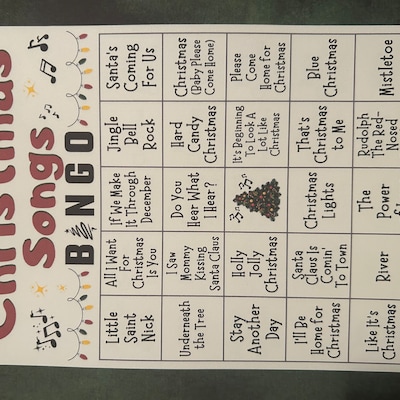 Christmas
Songs
BINGO
Little
Saint
Nick
All I Want
For
Christmas
Is You
If We Make
It Through
December
Jingle
Bell
Rock
Santa's
Coming
For Us
Underneath
the Tree
I Saw
Mommy
Kissing
Santa Claus
Do You
Hear What
I Hear?
Hard
Candy
Christmas
Christmas
(Baby Please
Come Home)
Stay
Another
Day
Holly
Jolly
Christmas
It's Beginning
To Look A
Lot Like
Christmas
Please
Come
Home for
Christmas
I'll Be
Home for
Christmas
Santa
Claus Is
Comin'
To Town
Christmas
Lights
That's
Christmas
to Me
Blue
Christmas
Like It's
Christmas
River
The
Power
Rudolph
The Red-
Nosed
Mistletoe